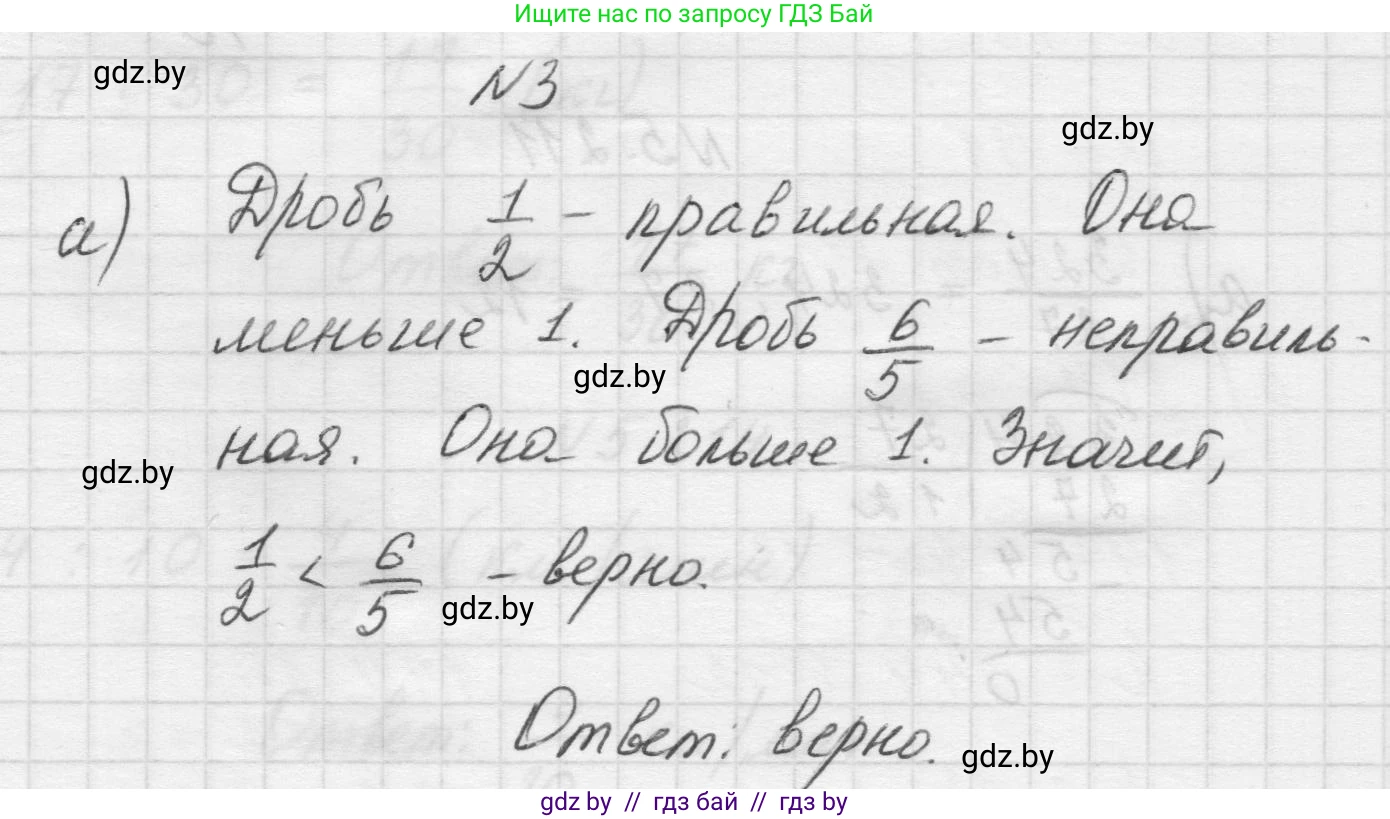 Ищите нас по запросу ГДЗ Бай
gdz.by
№3
gdz.by
а) Дробь 1/2 - правильная. Она
меньше 1. Дробь 6/5 - неправиль-
gdz.by
ная. Она больше 1. Значит,
gdz.by
1/2 < 6/5 - верно.
gdz.by
Ответ: верно.
gdz.by
gdz by // гдз бай // гдз by